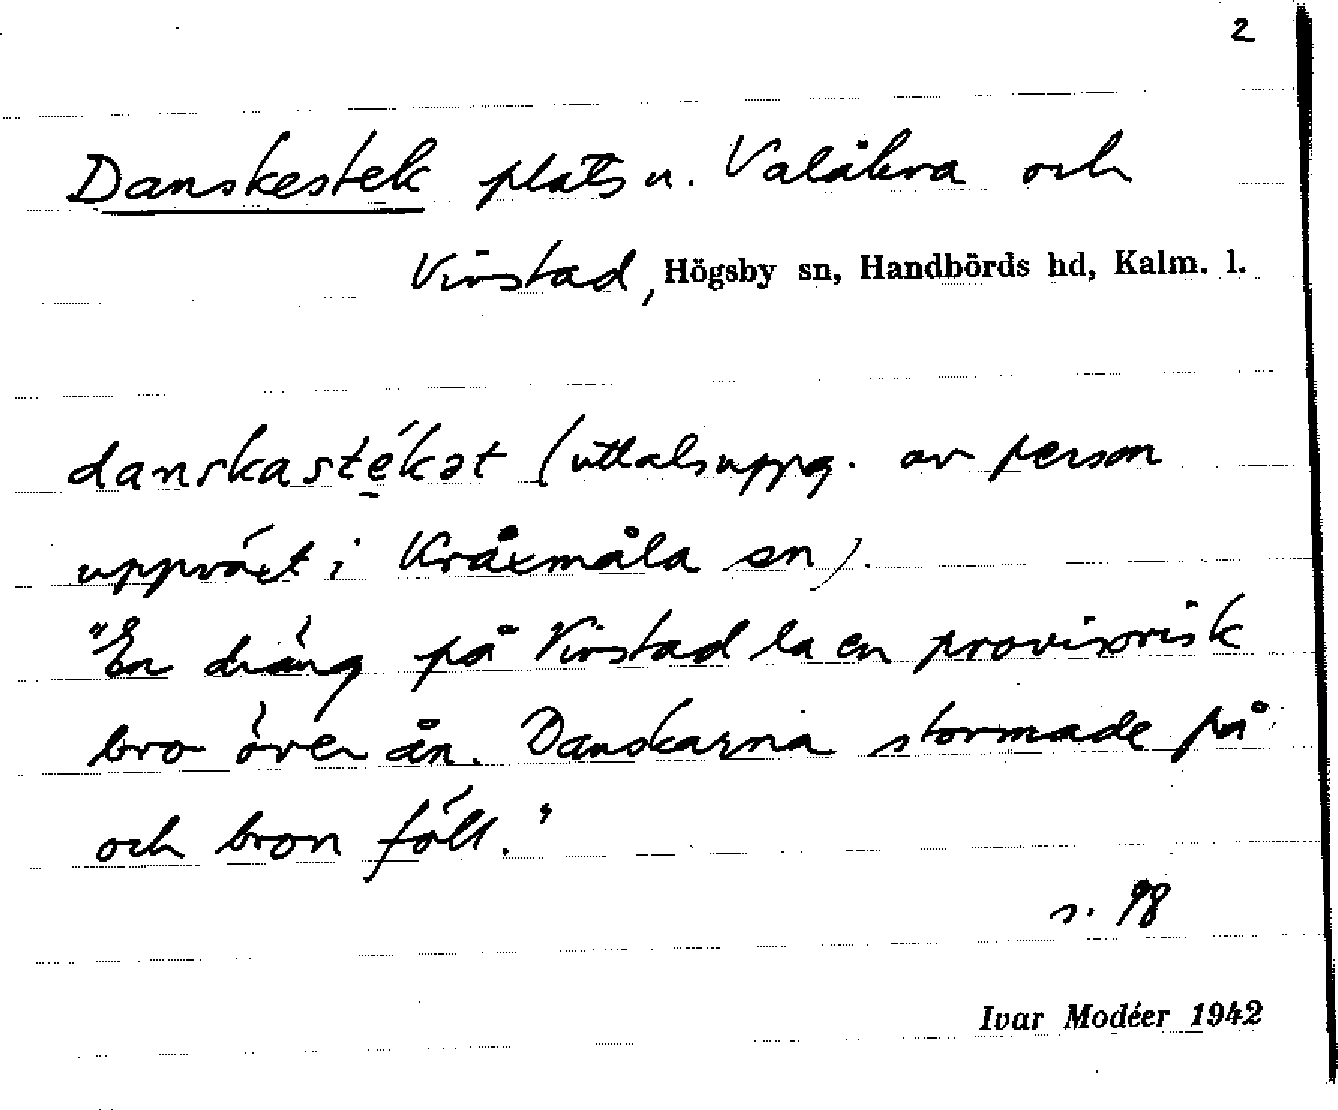 2
Danskestek plats u. Valåkra och
Virstad, Högsby sn, Handbörds hd, Kalm. l.
danskastékət (uttalsuppg. av person
uppväxt i Kråxmåla sn).
"En dräng på Virstad la en provisorisk
bro över ån. Danskarna stormade på
och bronföll."
s. 98
Ivar Modéer 1942